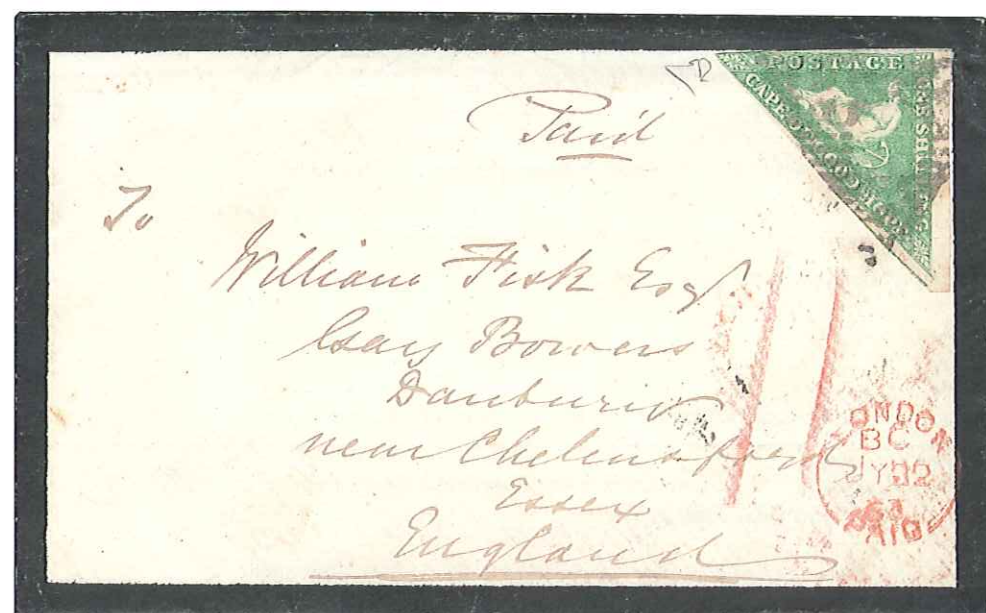 POSTAGE
CAPE OF GOOD HOPE
ONE SHILLING
Paid
To
William Fisk Esqr
Gay Bowers
Danbury
near Chelmsford
Essex
England
LONDON
BC
JY
63
PAID